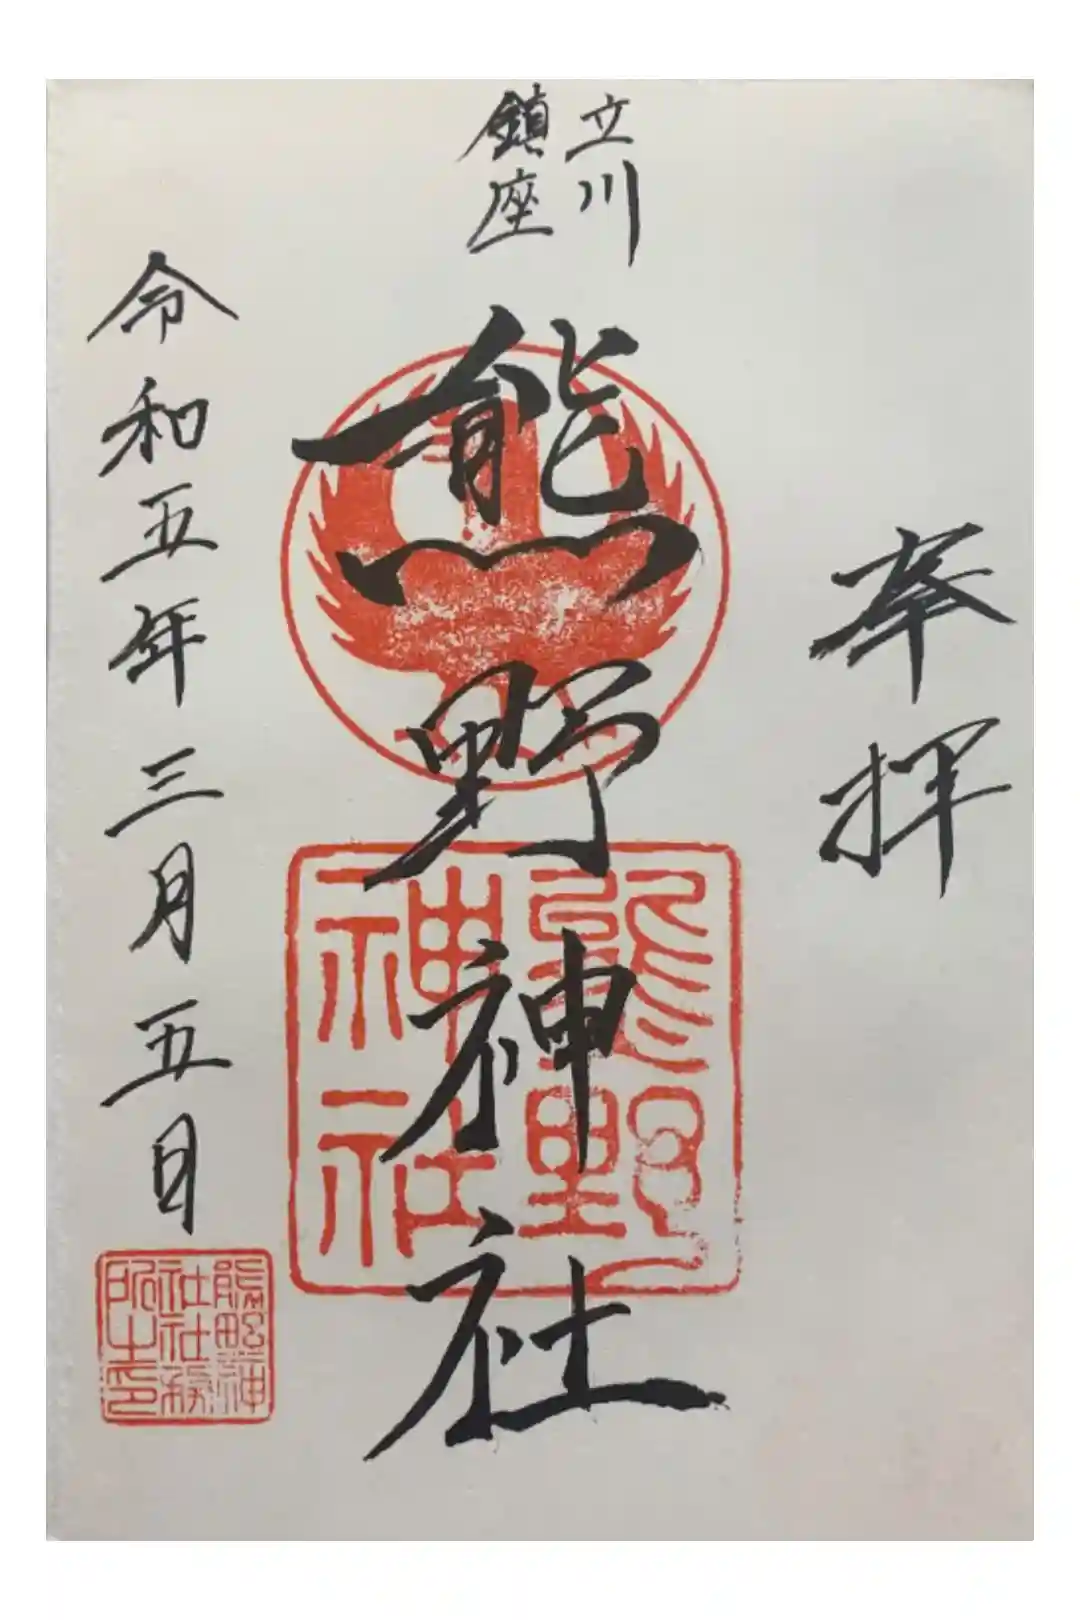 奉拝
立川
鎮座
熊野神社
熊野
神社
令和五年三月五日
熊野神
社社務
所之印